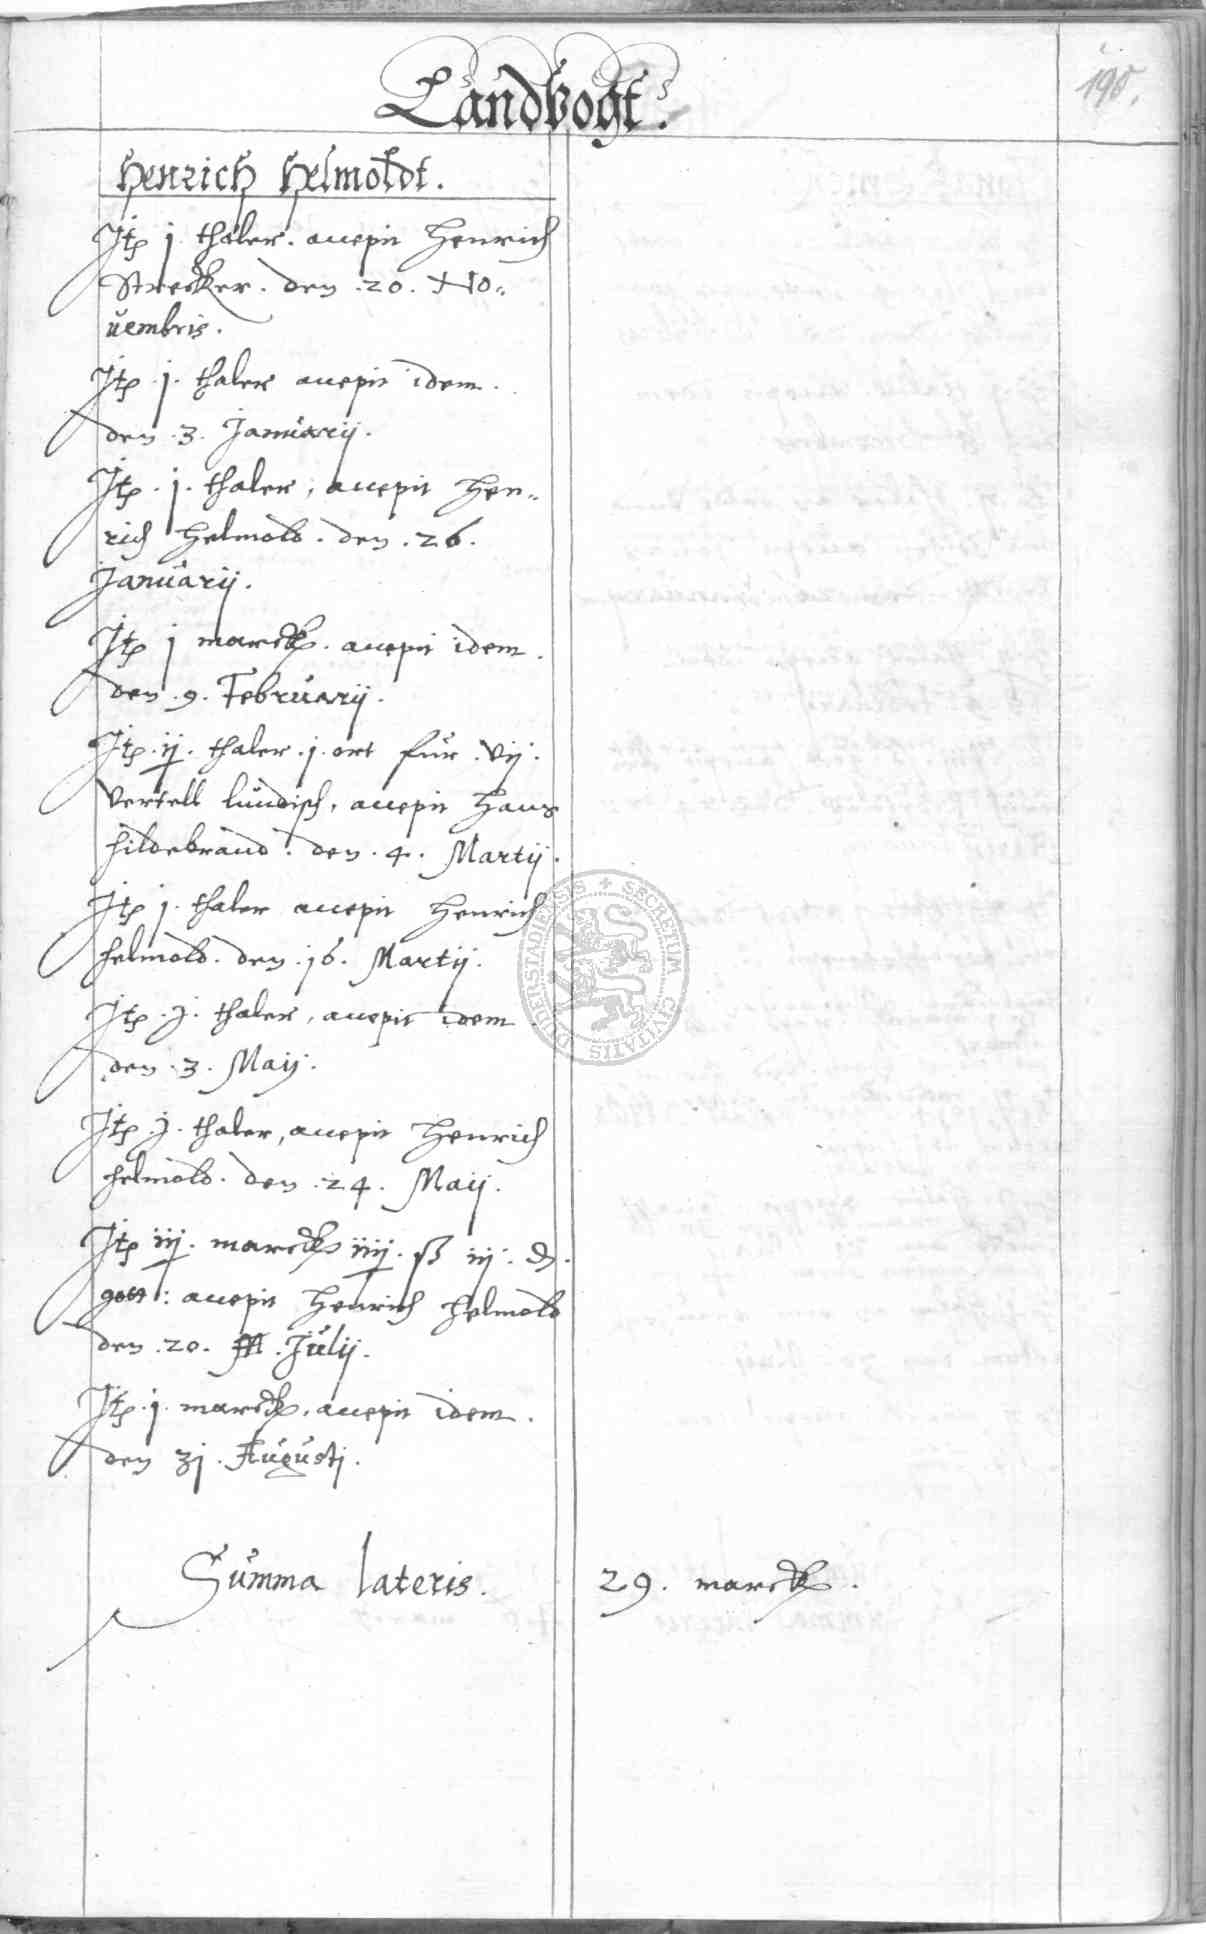 Landvogt.
190.
Henrich Helmoldt.
Itp j. thaler. accepit Henrich
Strecker. den .20. No„
uembris.
Itp .j. thaler accepit idem.
den .3. Januarij.
Itp .j. thaler, accepit Hen„
rich Helmold. den .26.
Januarij.
Itp j marck. accepit idem.
den .9. Februarij.
Itp .ij. thaler .j. ort für .vij.
vertell lundisch, accepit Hans
Hildebrand. den .4. Martij.
Itp j. thaler accepit Henrich
Helmold. den .16. Martij.
Itp .j. thaler, accepit idem
den .3. Maij.
Itp .j. thaler, accepit Henrich
Helmold. den .24. Maij.
Itp iij. marck iiij. ß iij. d.
gott: accepit Henrich Helmold
den .20. Julij.
Itp .j. marck, accepit idem.
den 31. Augusti.
Summa lateris. 29. marck.
SECRETUM CIVITATIS DUDERSTADIENSIS